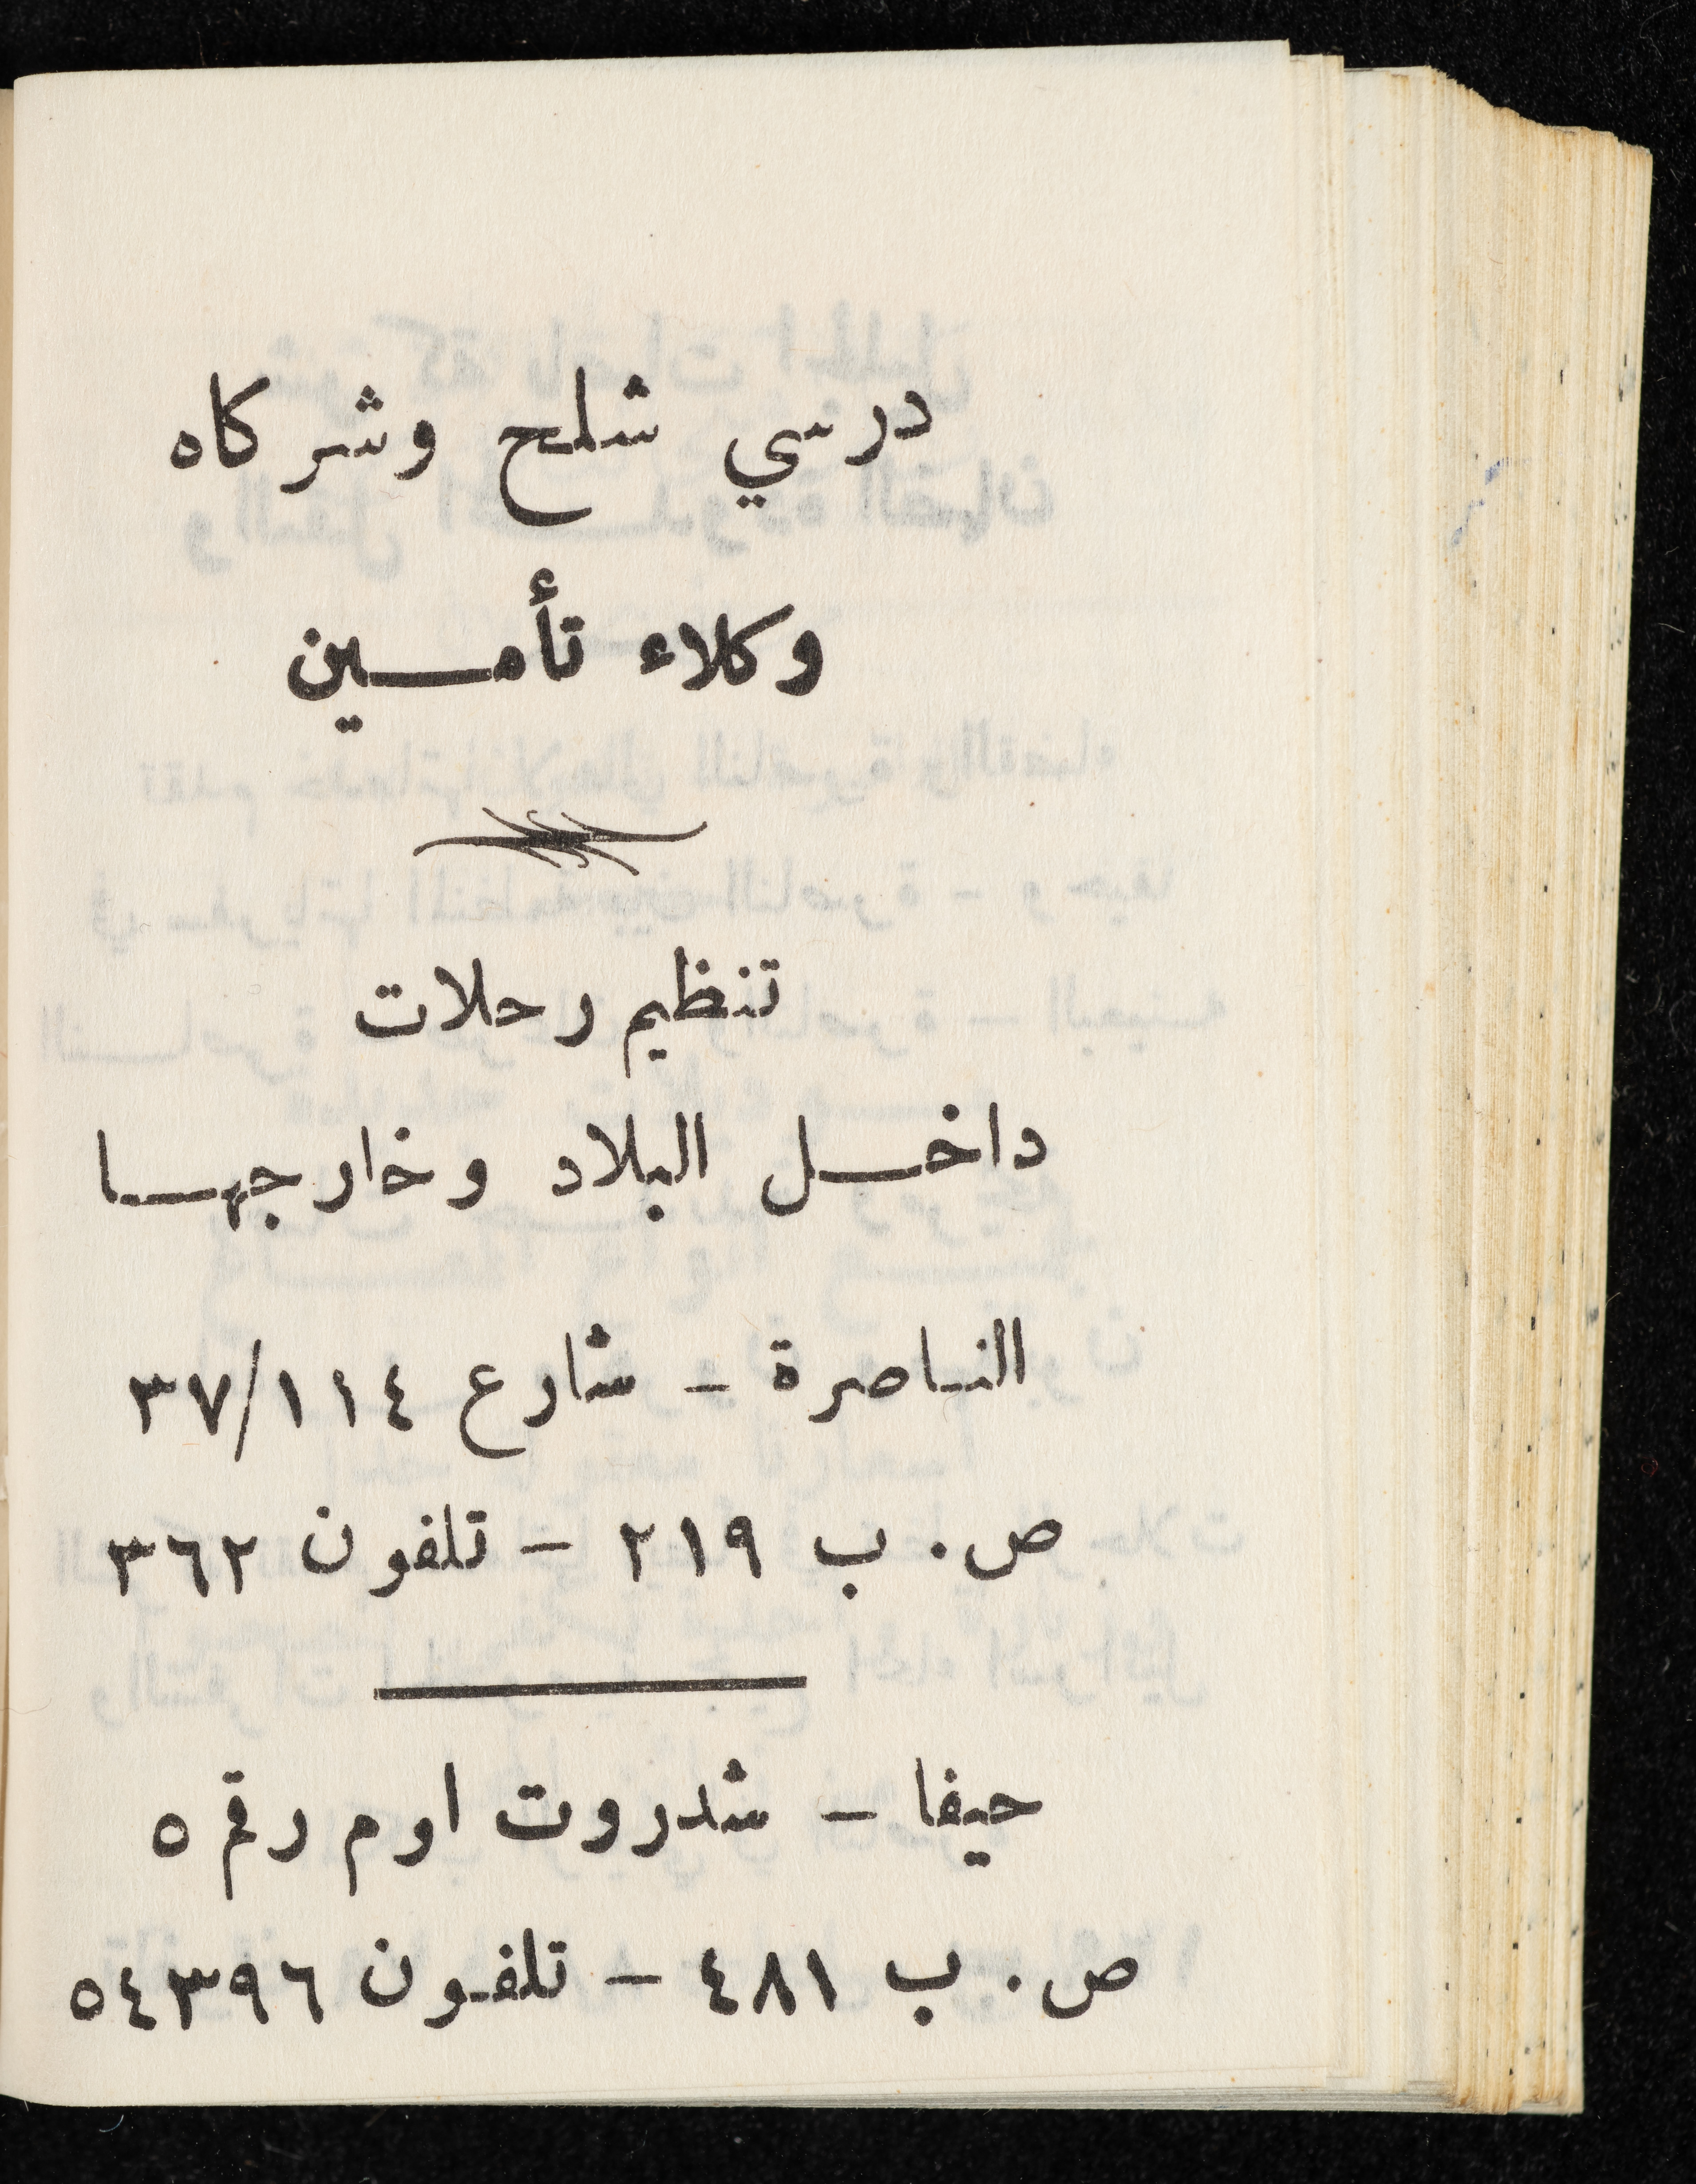 درسي شلح وشركاه
وكلاء تأمسين
تنظيم رحلات
داخل البلاد وخارجها
الناصرة - شارع ٣٧/١١٤
ص. ب ٢١٩ - تلفون ٣٦٢
حيفا - شدروت اوم رقم ٥
ص. ب ٤٨١ - تلفون ٥٤٣٩٦